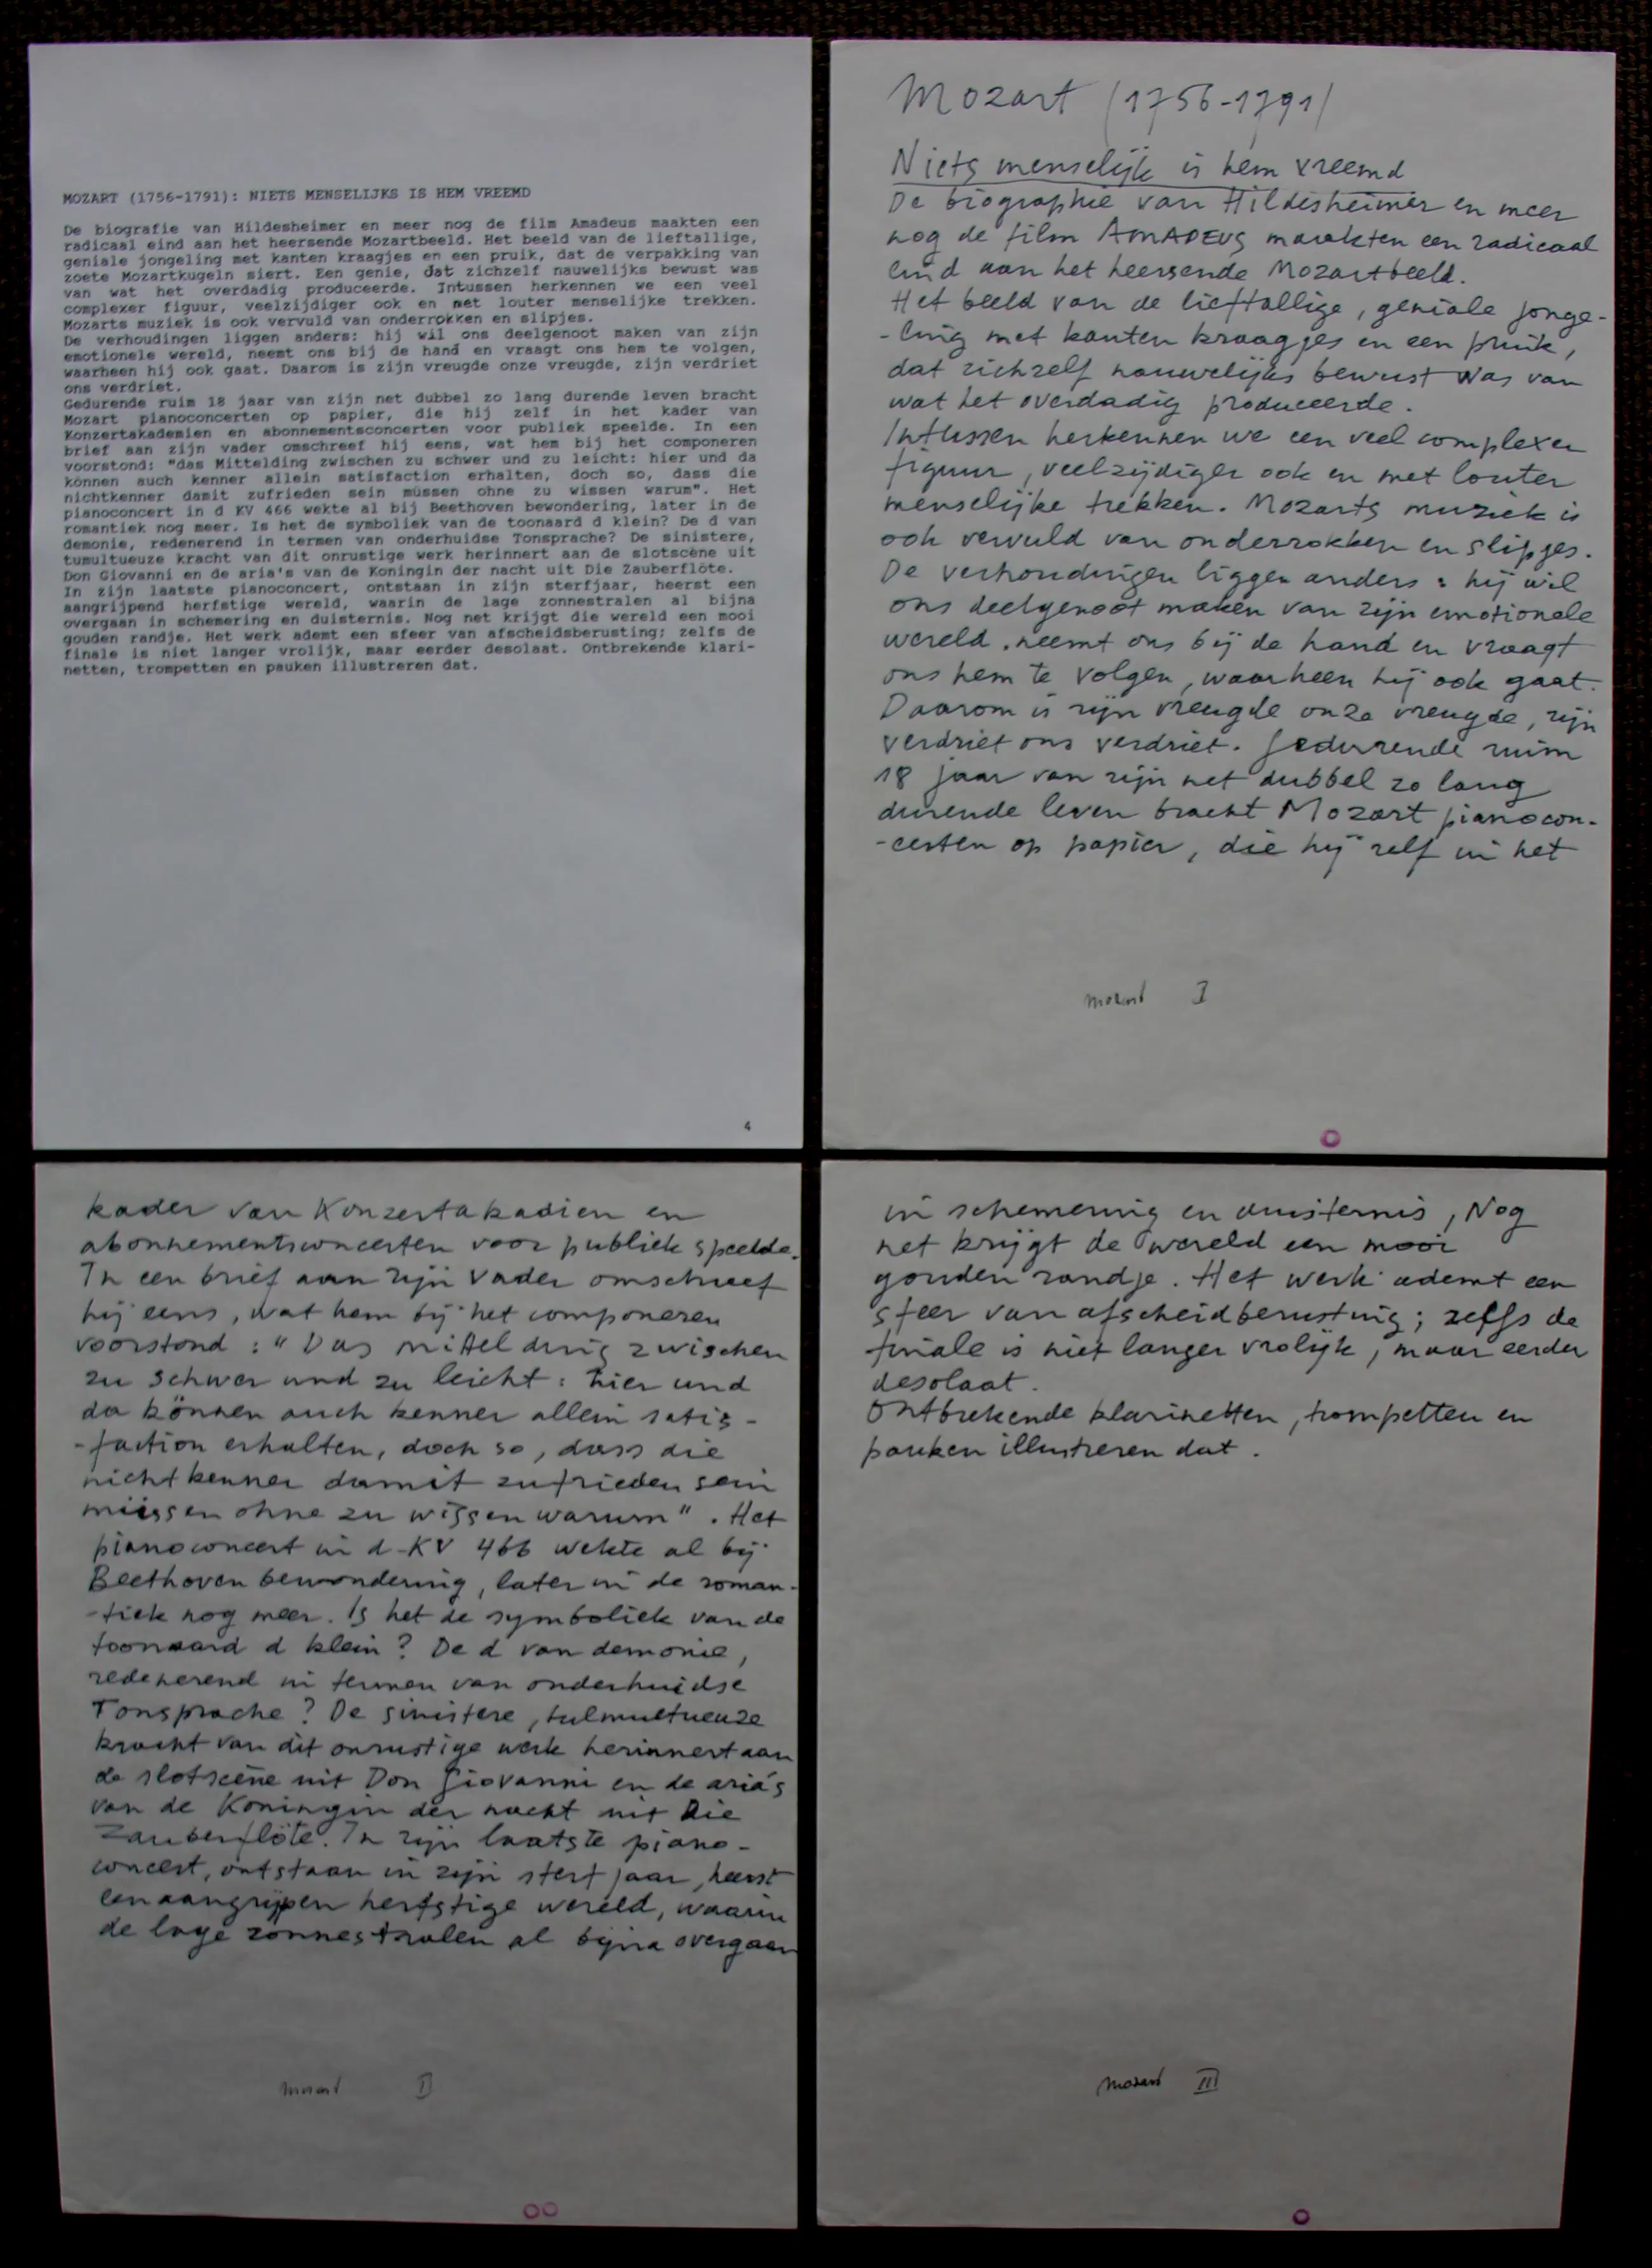 MOZART (1756-1791): NIETS MENSELIJKS IS HEM VREEMD
De biografie van Hildesheimer en meer nog de film Amadeus maakten een
radicaal eind aan het heersende Mozartbeeld. Het beeld van de lieftallige,
geniale jongeling met kanten kraagjes en een pruik, dat de verpakking van
zoete Mozartkugeln siert. Een genie, dat zichzelf nauwelijks bewust was
van wat het overdadig produceerde. Intussen herkennen we een veel
complexer figuur, veelzijdiger ook en met louter menselijke trekken.
Mozarts muziek is ook vervuld van onderrokken en slipjes.
De verhoudingen liggen anders: hij wil ons deelgenoot maken van zijn
emotionele wereld, neemt ons bij de hand en vraagt ons hem te volgen,
waarheen hij ook gaat. Daarom is zijn vreugde onze vreugde, zijn verdriet
ons verdriet.
Gedurende ruim 18 jaar van zijn net dubbel zo lang durende leven bracht
Mozart pianoconcerten op papier, die hij zelf in het kader van
Konzertakademien en abonnementsconcerten voor publiek speelde. In een
brief aan zijn vader omschreef hij eens, wat hem bij het componeren
voorstond: "das Mittelding zwischen zu schwer und zu leicht: hier und da
können auch kenner allein satisfaction erhalten, doch so, dass die
nichtkenner damit zufrieden sein müssen ohne zu wissen warum". Het
pianoconcert in d KV 466 wekte al bij Beethoven bewondering, later in de
romantiek nog meer. Is het de symboliek van de toonaard d klein? De d van
demonie, redenerend in termen van onderhuidse Tonsprache? De sinistere,
tumultueuze kracht van dit onrustige werk herinnert aan de slotscène uit
Don Giovanni en de aria's van de Koningin der nacht uit Die Zauberflöte.
In zijn laatste pianoconcert, ontstaan in zijn sterfjaar, heerst een
aangrijpend herfstige wereld, waarin de lage zonnestralen al bijna
overgaan in schemering en duisternis. Nog net krijgt die wereld een mooi
gouden randje. Het werk ademt een sfeer van afscheidsberusting; zelfs de
finale is niet langer vrolijk, maar eerder desolaat. Ontbrekende klari-
netten, trompetten en pauken illustreren dat.
4
Mozart (1756-1791)
Niets menselijk is hem vreemd
De biographie van Hildesheimer en meer
nog de film AMADEUS maakten een radicaal
eind aan het heersende Mozartbeeld.
Het beeld van de lieftallige, geniale jonge-
-ling met kanten kraagjes en een pruik,
dat zichzelf nauwelijks bewust was van
wat het overdadig produceerde.
Intussen herkennen we een veel complexer
figuur, veelzijdiger ook en met louter
menselijke trekken. Mozarts muziek is
ook vervuld van onderrokken en slipjes.
De verhoudingen liggen anders: hij wil
ons deelgenoot maken van zijn emotionele
wereld, neemt ons bij de hand en vraagt
ons hem te volgen, waarheen hij ook gaat.
Daarom is zijn vreugde onze vreugde, zijn
verdriet ons verdriet. Gedurende ruim
18 jaar van zijn net dubbel zo lang
durende leven bracht Mozart pianocon-
-certen op papier, die hij zelf in het
mozart I
kader van Konzertakadien en
abonnementsconcerten voor publiek speelde.
In een brief aan zijn vader omschreef
hij eens, wat hem bij het componeren
voorstond: "Das mittelding zwischen
zu schwer und zu leicht: hier und
da können auch kenner allein satis-
-faction erhalten, doch so, dass die
nichtkenner damit zufrieden sein
müssen ohne zu wissen warum". Het
pianoconcert in d-KV 466 wekte al bij
Beethoven bewondering, later in de roman-
-tiek nog meer. Is het de symboliek van de
toonaard d klein? De d van demonie,
redenerend in termen van onderhuidse
Tonsprache? De sinistere, tulmultueuze
kracht van dit onrustige werk herinnert aan
de slotscène uit Don Giovanni en de aria's
van de Koningin der nacht uit Die
Zauberflöte. In zijn laatste piano-
concert, ontstaan in zijn sterfjaar, heerst
een aangrijpen herfstige wereld, waarin
de lage zonnestralen al bijna overgaan
mozart II
in schemering en duisternis, Nog
net krijgt de wereld een mooi
gouden randje. Het werk ademt een
sfeer van afscheidberusting; zelfs de
finale is niet langer vrolijk, maar eerder
desolaat.
Ontbrekende klarinetten, trompetten en
pauken illustreren dat.
mozart III